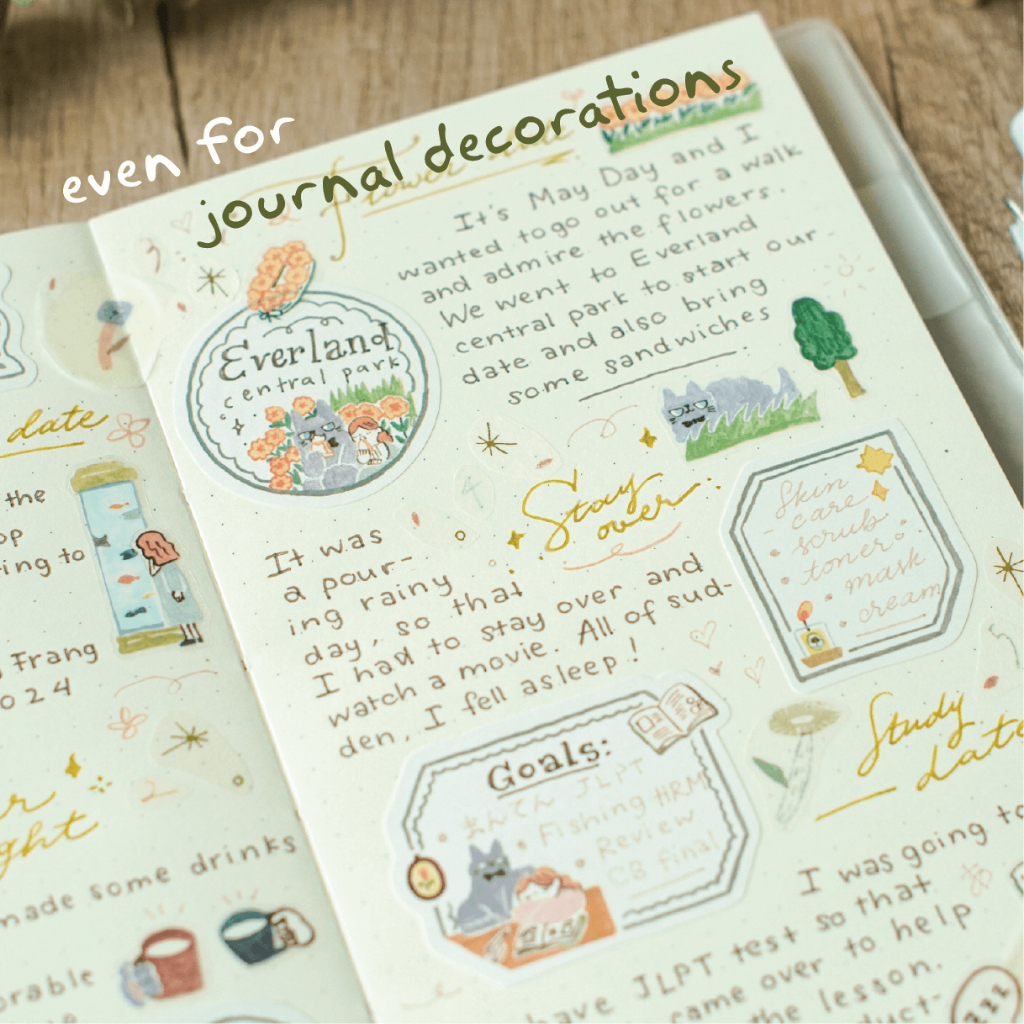 even for
journal decorations
It's May Day and I
wanted to go out for a walk
and admire the flowers.
We went to Everland
central park to start our
date and also bring
some sandwiches
Everland
central park
Stay
over
It was
a pour-
ing rainy
day, so that
I had to stay over and
watch a movie. All of sud-
den, I fell asleep!
Skin
care
scrub
toner
mask
cream
Goals:
JLPT
Fishing HRM
Review
CB final
Study
date
I was going to
have JLPT test so that
came over to help
the lesson.
date
the
op
ing to
Frang
2024
ght
made some drinks
orable